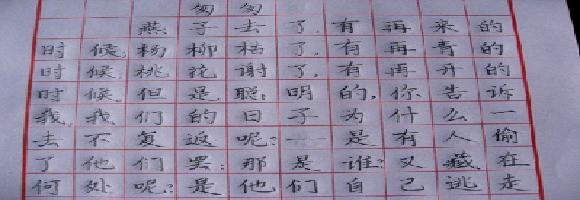 匆匆
燕子去了,有再来的
时候,杨柳枯了,有再青的
时候,桃花谢了,有再开的
时候。但是,聪明的,你告诉
我,我们的日子为什么一
去不复返呢?——是有人偷
了他们罢:那是谁?又藏在
何处呢?是他们自己逃走